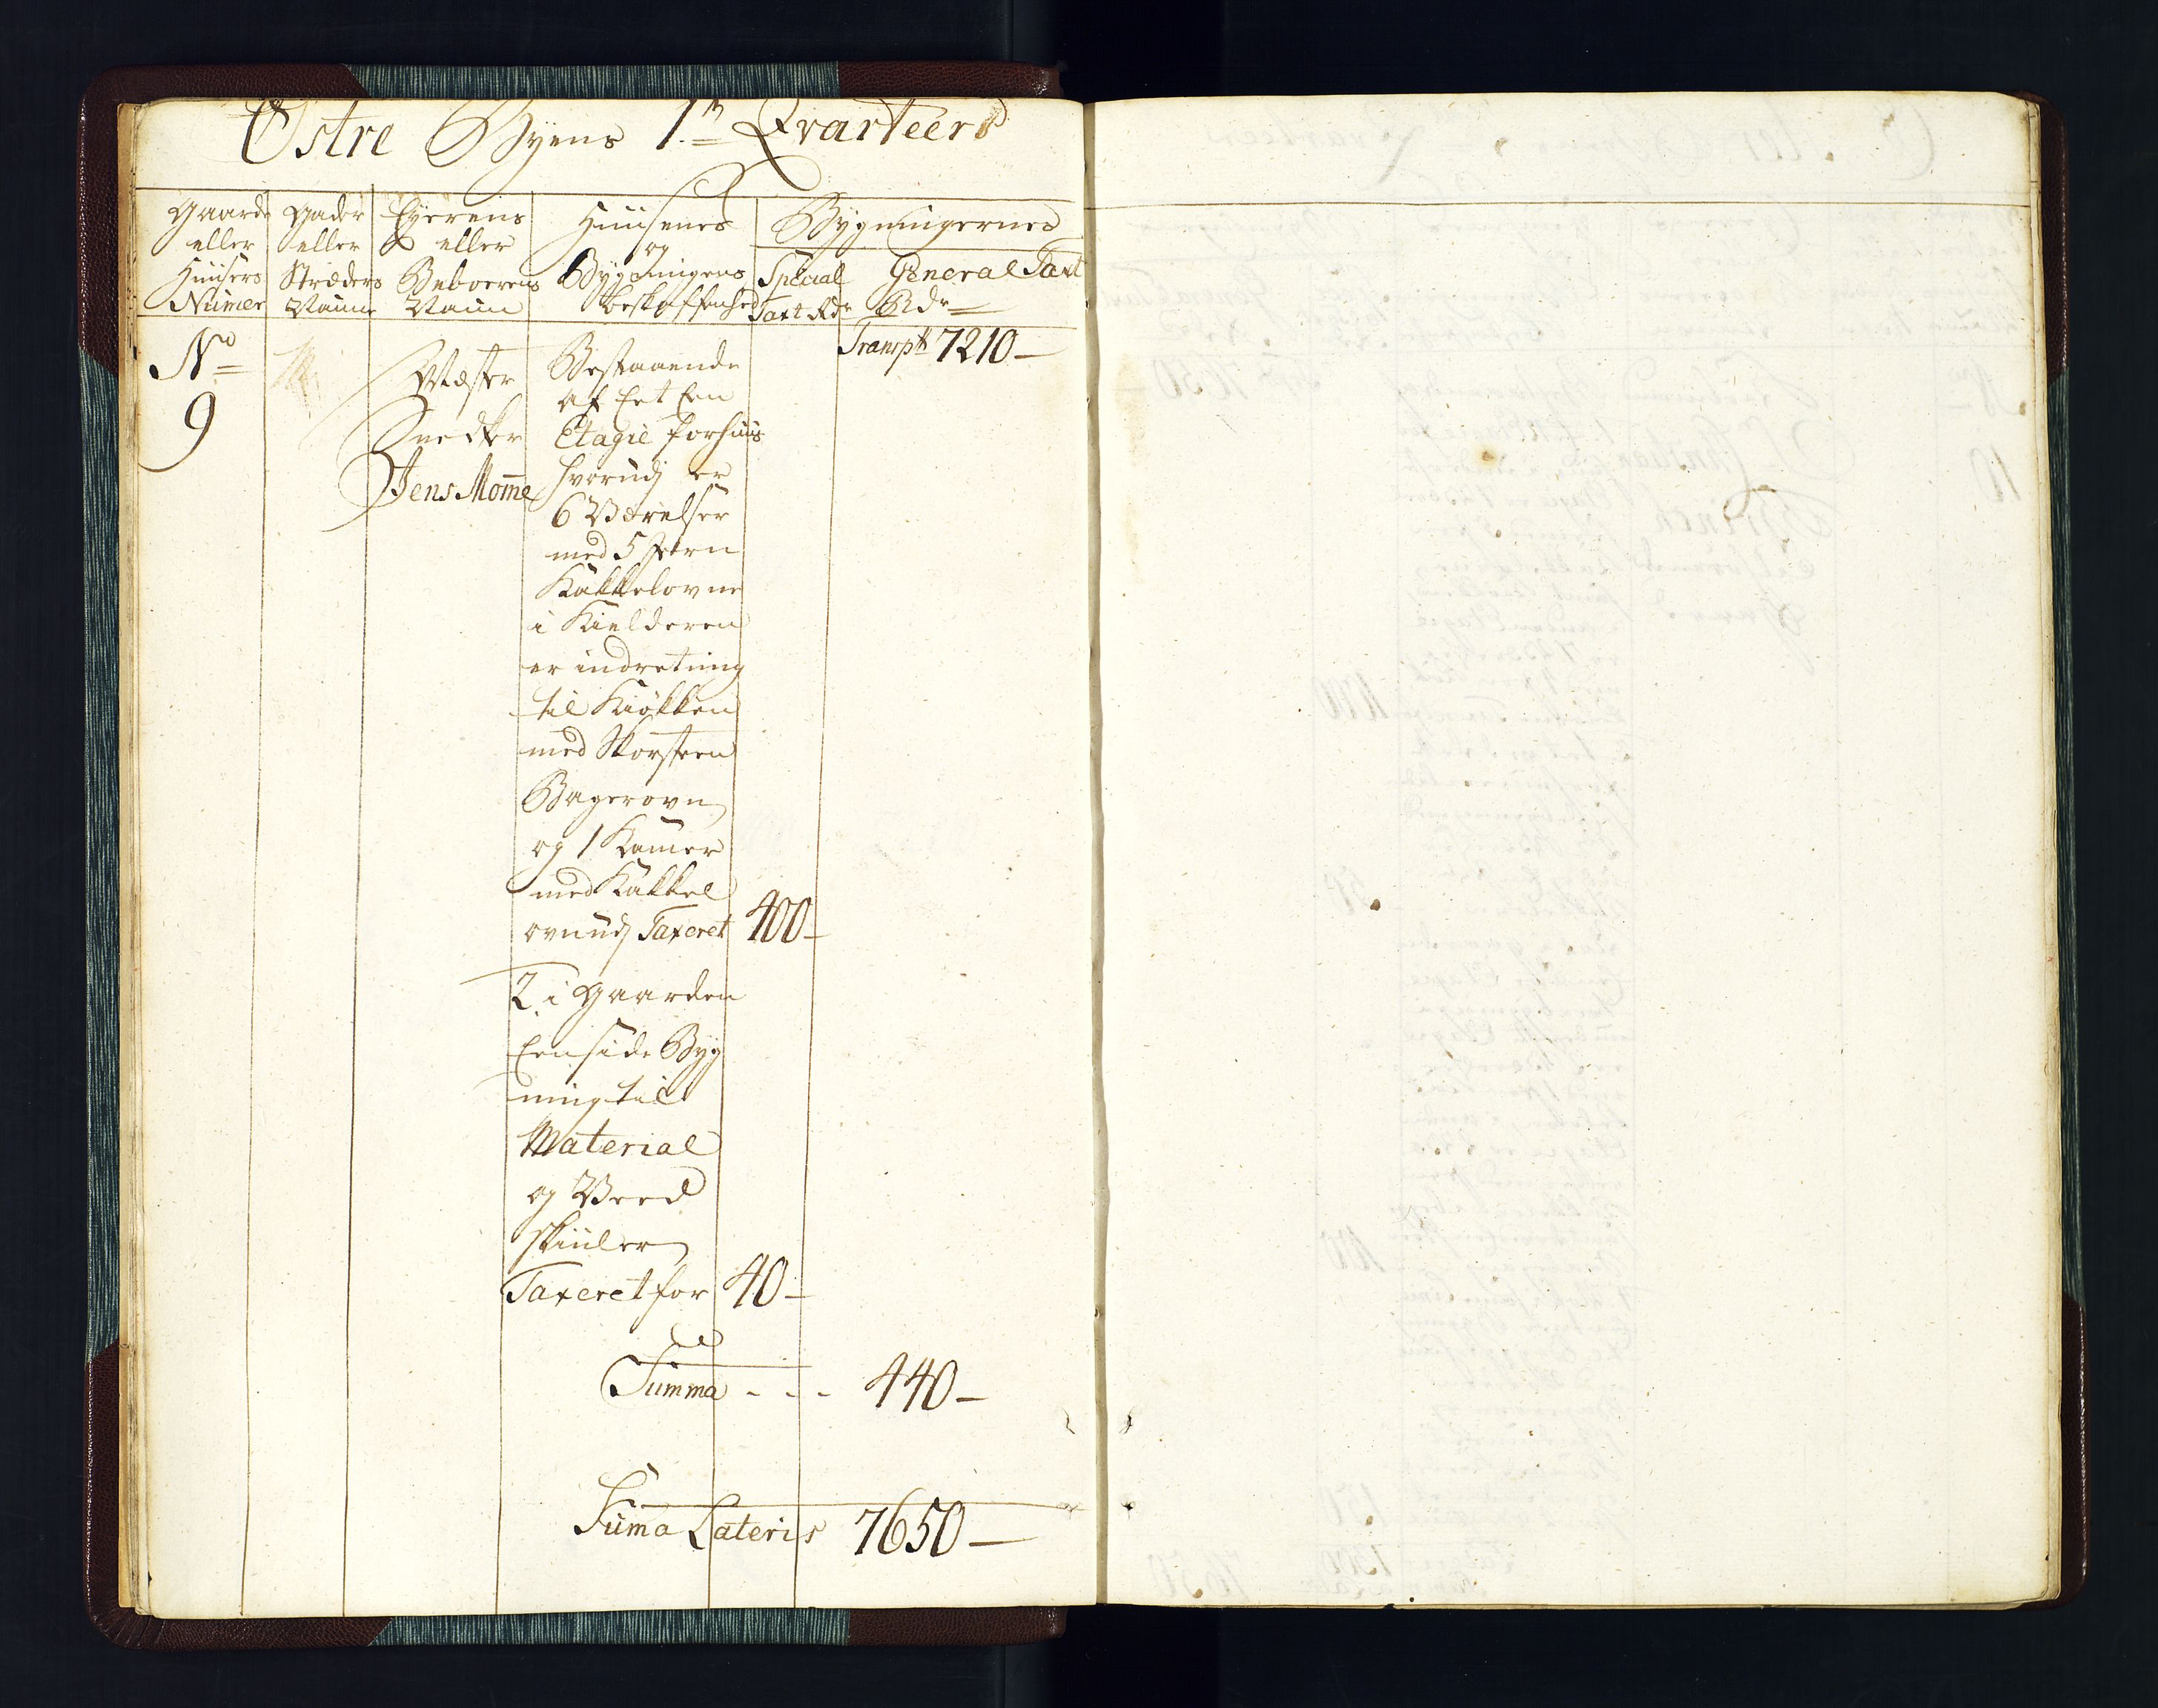 Østre Byens 1.ᵐ Qvarteer
Gaarde eller Huusers Numer
Gader eller Stræders Naune
Eyerens eller Beboerens Naun
Huusenes og Bygningens beskaffenhed
Bygningernes
Special Taxt Rdr
General Taxt Rdr
Transpt 7210 —
No 9
Mester
Snedker
Jens Mom̄e
Bestaaende
af Eet Een
Etagie forhuus
hvorudj er
6 Værelser
med 5 Jern
Kakkelovne
i Kielderen
er indretning
til Kiøkken
med Skorsteen
Bagerovn
og 1 Kamer
med Kakkel
ovn udj Taxeret 400 —
2. i Gaarden
Een side Byg
ning til
Material
og Veed
skiuler
Taxeret for 40 —
Summa - - - 440 —
Suma Lateris 7650 —